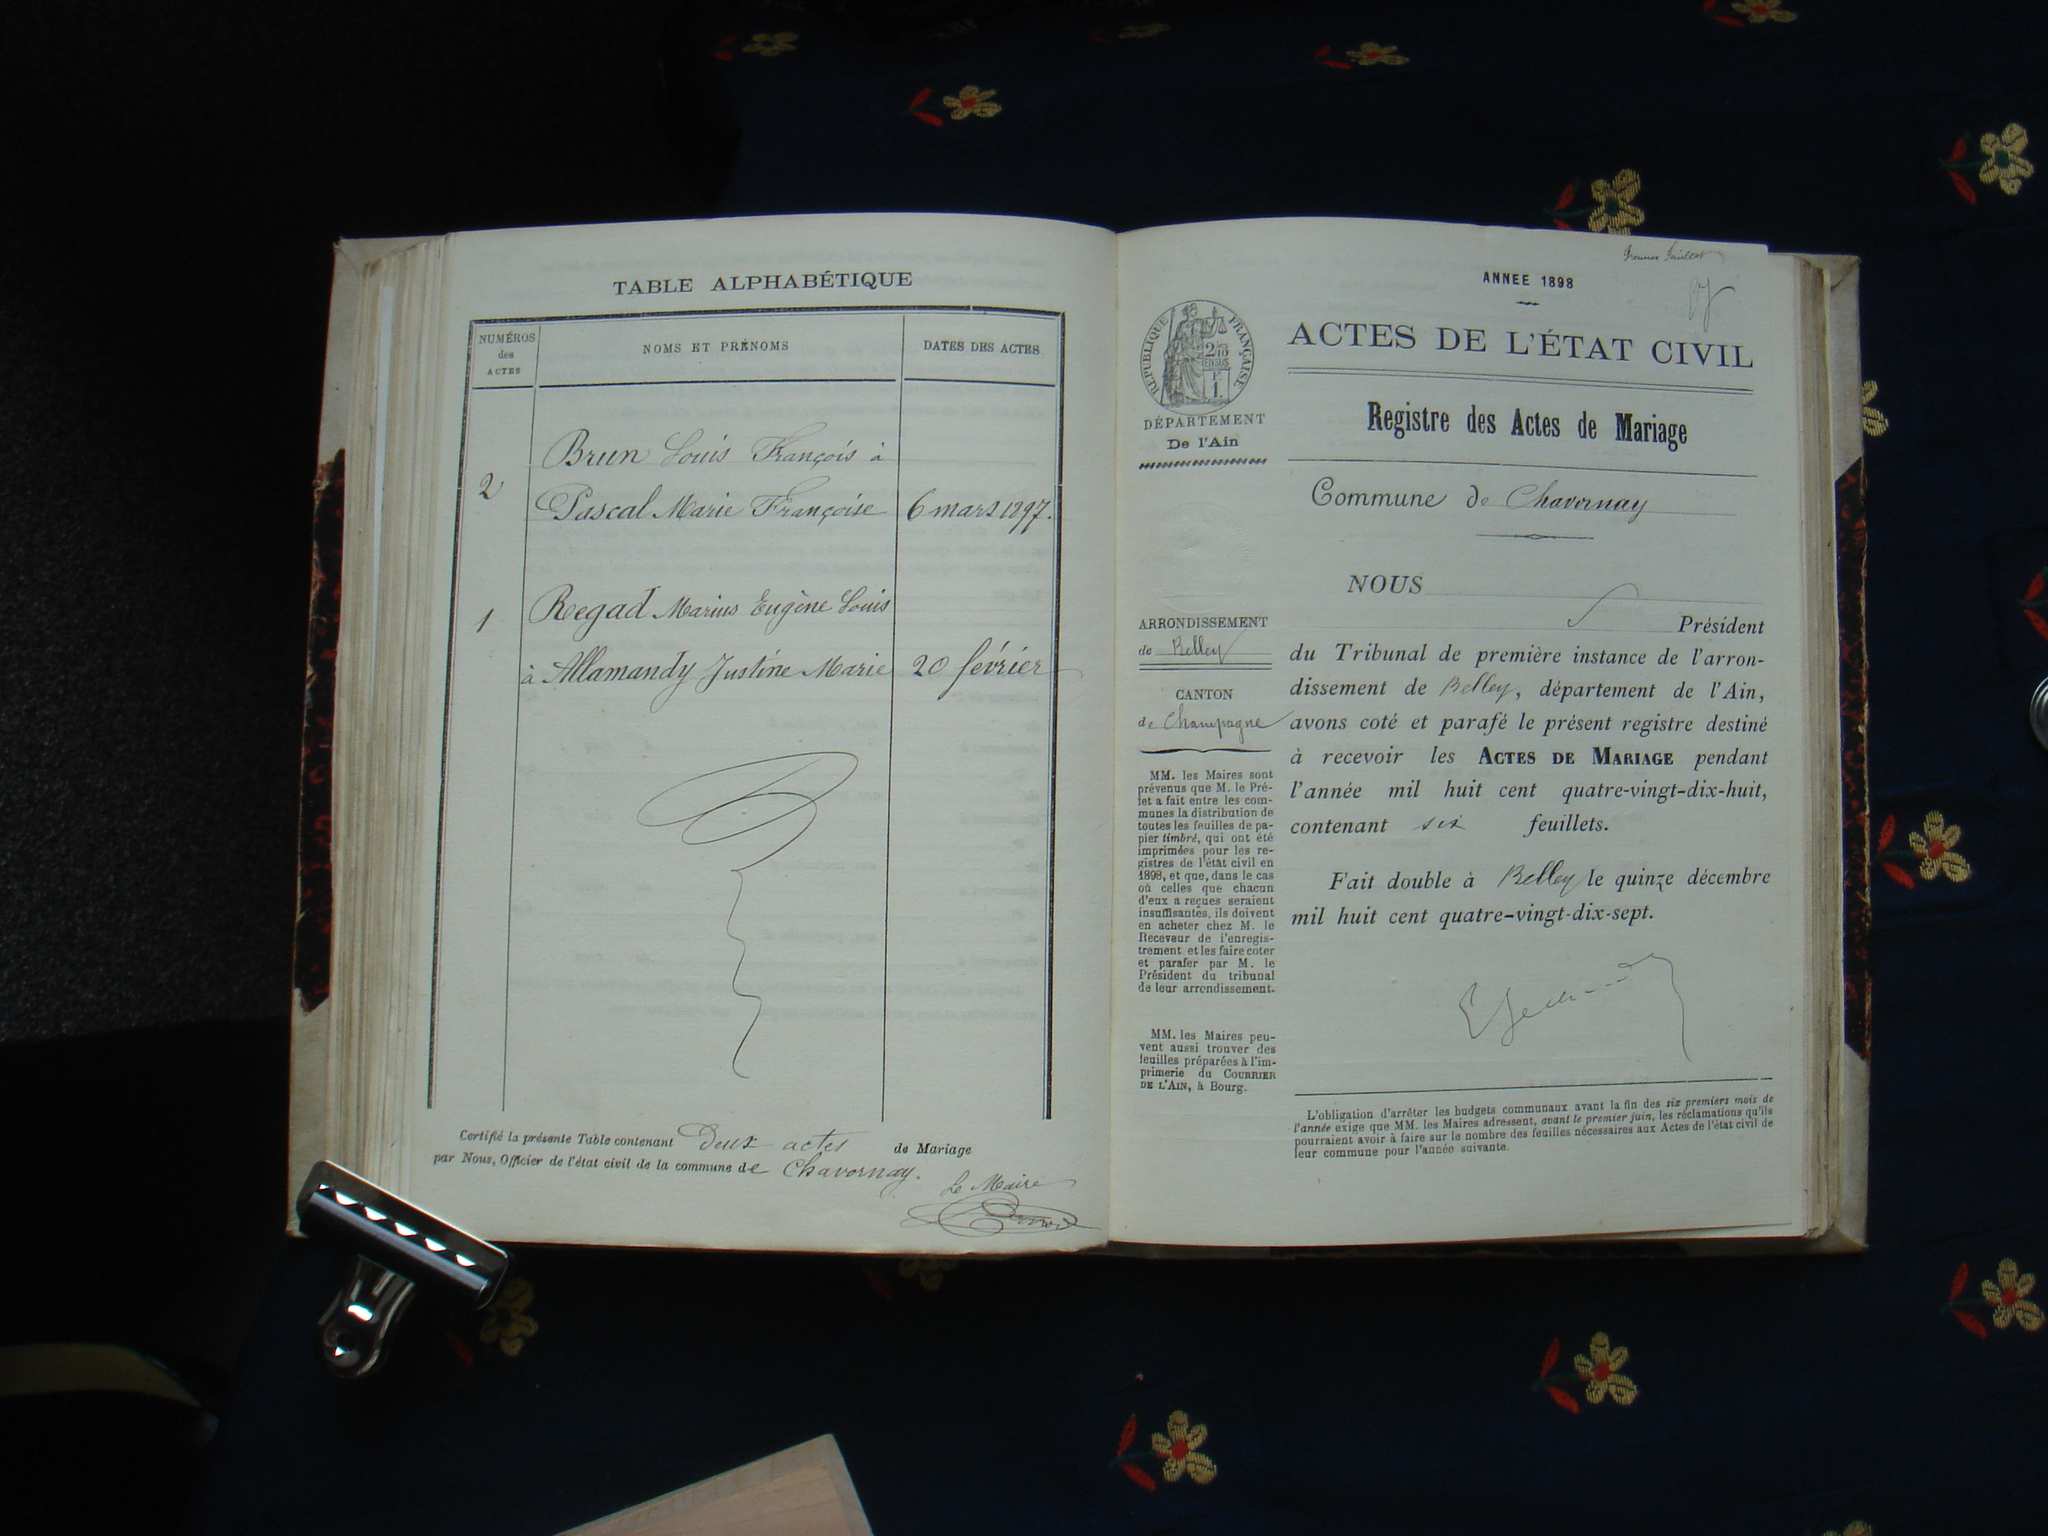 TABLE ALPHABÉTIQUE
NUMÉROS
des
ACTES
NOMS ET PRÉNOMS
DATES DES ACTES
Brun Louis François à
2
Pascal Marie Françoise
6 mars 1897.
Regad Marius Eugène Louis
1
à Allamandy Justine Marie
20 février
Certifié la présente Table contenant Deux actes de Mariage
par Nous, Officier de l'état civil de la commune de Chavornay.
Le Maire
ANNÉE 1898
RÉPUBLIQUE FRANÇAISE
2/10
EN SUS
1
DÉPARTEMENT
De l'Ain
ARRONDISSEMENT
de Belley
CANTON
de Champagne
MM. les Maires sont
prévenus que M. le Pré-
fet a fait entre les com-
munes la distribution de
toutes les feuilles de pa-
pier timbré, qui ont été
imprimées pour les re-
gistres de l'état civil en
1898, et que, dans le cas
où celles que chacun
d'eux a reçues seraient
insuffisantes, ils doivent
en acheter chez M. le
Receveur de l'enregis-
trement et les faire coter
et parafer par M. le
Président du tribunal
de leur arrondissement.
MM. les Maires peu-
vent aussi trouver des
feuilles préparées à l'im-
primerie du COURRIER
DE L'AIN, à Bourg.
ACTES DE L'ÉTAT CIVIL
Registre des Actes de Mariage
Commune de Chavornay
NOUS
Président
du Tribunal de première instance de l'arron-
dissement de Belley, département de l'Ain,
avons coté et parafé le présent registre destiné
à recevoir les ACTES DE MARIAGE pendant
l'année mil huit cent quatre-vingt-dix-huit,
contenant six feuillets.
Fait double à Belley le quinze décembre
mil huit cent quatre-vingt-dix-sept.
L'obligation d'arrêter les budgets communaux avant la fin des six premiers mois de
l'année exige que MM. les Maires adressent, avant le premier juin, les réclamations qu'ils
pourraient avoir à faire sur le nombre des feuilles nécessaires aux Actes de l'état civil de
leur commune pour l'année suivante.